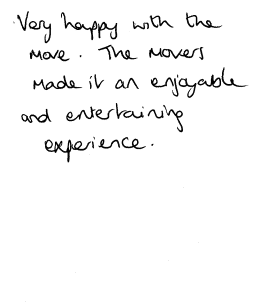 Very happy with the
move. The movers
made it an enjoyable
and entertaining
experience.